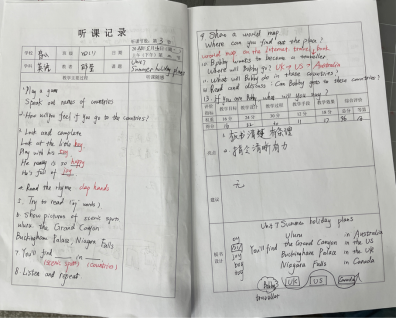 听课记录
听课节数: 第 3 节
学校
班级
日期
学科 英语
教师
课题 Unit 7 Summer holiday plans
教学主要过程
听课随想
1. Play a game
Speak out names of countries
2. How will you feel if you go to the countries?
3. Look and complete
Look at the little boy.
Play with his toy
He really is so happy
He's full of joy
4. Read the rhyme clap hands
5. Try to read (oy words)
6. Show pictures of scenic spots
Uluru the Grand Canyon
Buckingham Palace, Niagara Falls
7. You'll find ___ in ___
(scenic spots) (countries)
8. Listen and repeat
9. Show a world map
Where can you find out the places?
world map on the internet travel book
10. Bobby wants to become a traveller
Where will Bobby go? UK → US → Australia
11. What will Bobby do in these countries?
12. Read and discuss: Can Bobby go to these countries?
13. If you are Bobby, what will you say?
评价
权重
得分
综合评价
总评
1. 板书清晰 有条理
2. 指令清晰有力
建议
无
板书设计
Unit 7 Summer holiday plans
oy
boy
joy
toy
You'll find
Uluru in Australia
the Grand Canyon in the US
Buckingham Palace in the UK
Niagara Falls in Canada
Bobby
UK
US
Canada
traveller